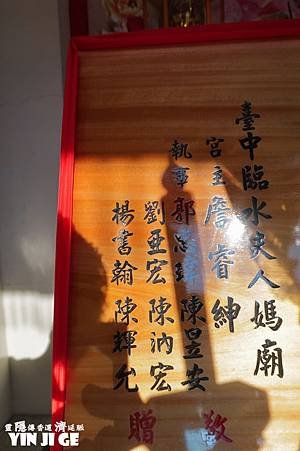 臺中臨水夫人媽廟
宮主詹睿紳
執事郭
陳昱安
劉亞宏陳汭宏
楊書翰陳輝允
敬
贈
靈隱傳香道濟延脈
YIN JI GE